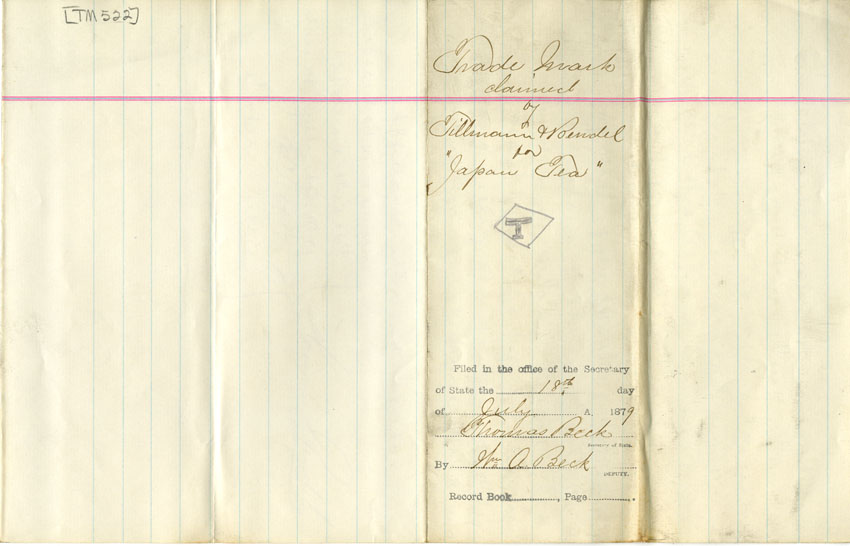 [TM 522]
Trade Mark
claimed
by
Tillmann & Bendel
for
"Japan Tea"
T
Filed in the office of the Secretary
of State the 18th day
of July A. 1879
Thomas Beck
Secretary of State.
By Wm A. Beck
DEPUTY.
Record Book, Page.